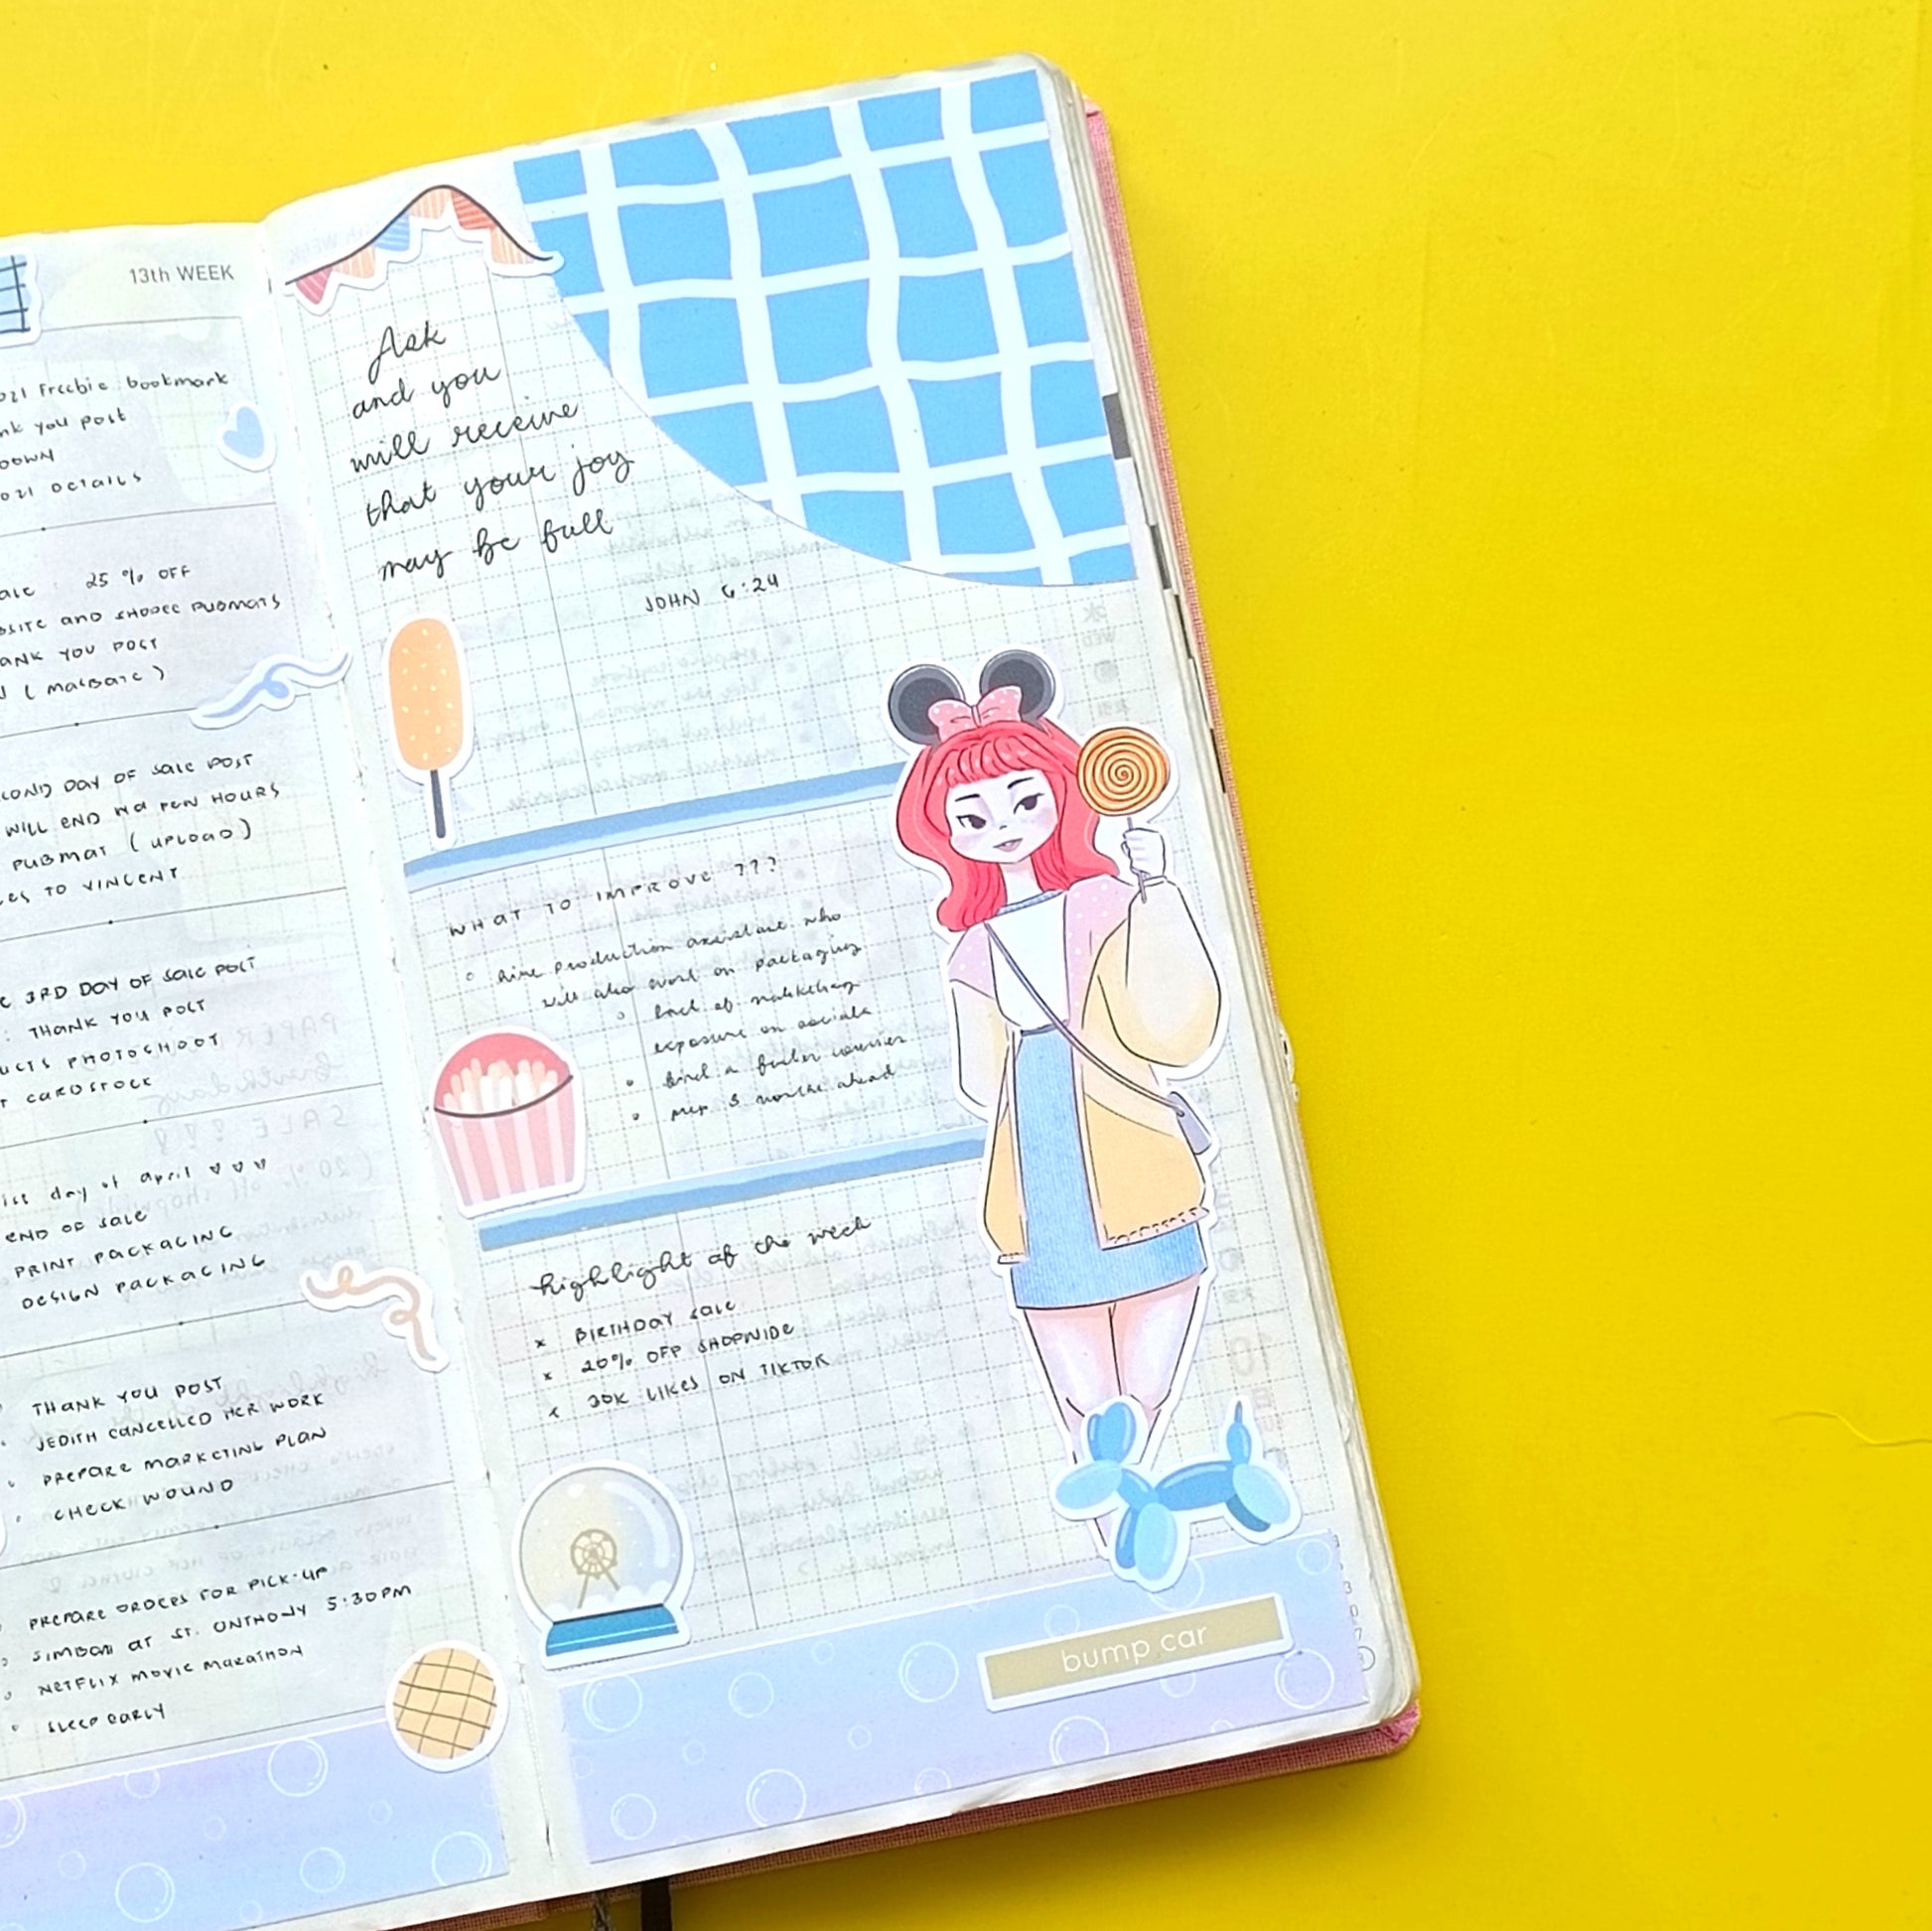 13th WEEK
021 Freebie bookmark
nk you post
DOWN
021 DETAILS
ale : 25 % OFF
bsite and shopee pubmats
ank you post
( maebate )
cond day of sale post
will end in a few hours
pubmat ( upload )
es to vincent
3rd day of sale post
: thank you post
ucts photoshoot
t cardstock
ist day of april
end of sale
print packaging
design packaging
thank you post
jedith cancelled her work
prepare marketing plan
check wound
prepare orders for pick-up
simbahan at st. anthony 5:30pm
netflix movie marathon
sleep early
Ask
and you
will receive
that your joy
may be full
JOHN 6:24
WHAT TO IMPROVE ???
hire production assistant who
will also work on packaging
lack of marketing
exposure on socials
find a faster courier
prep 3 months ahead
highlight of the week
x BIRTHDAY SALE
x 20% OFF SHOPWIDE
x 30K LIKES ON TIKTOK
bump car